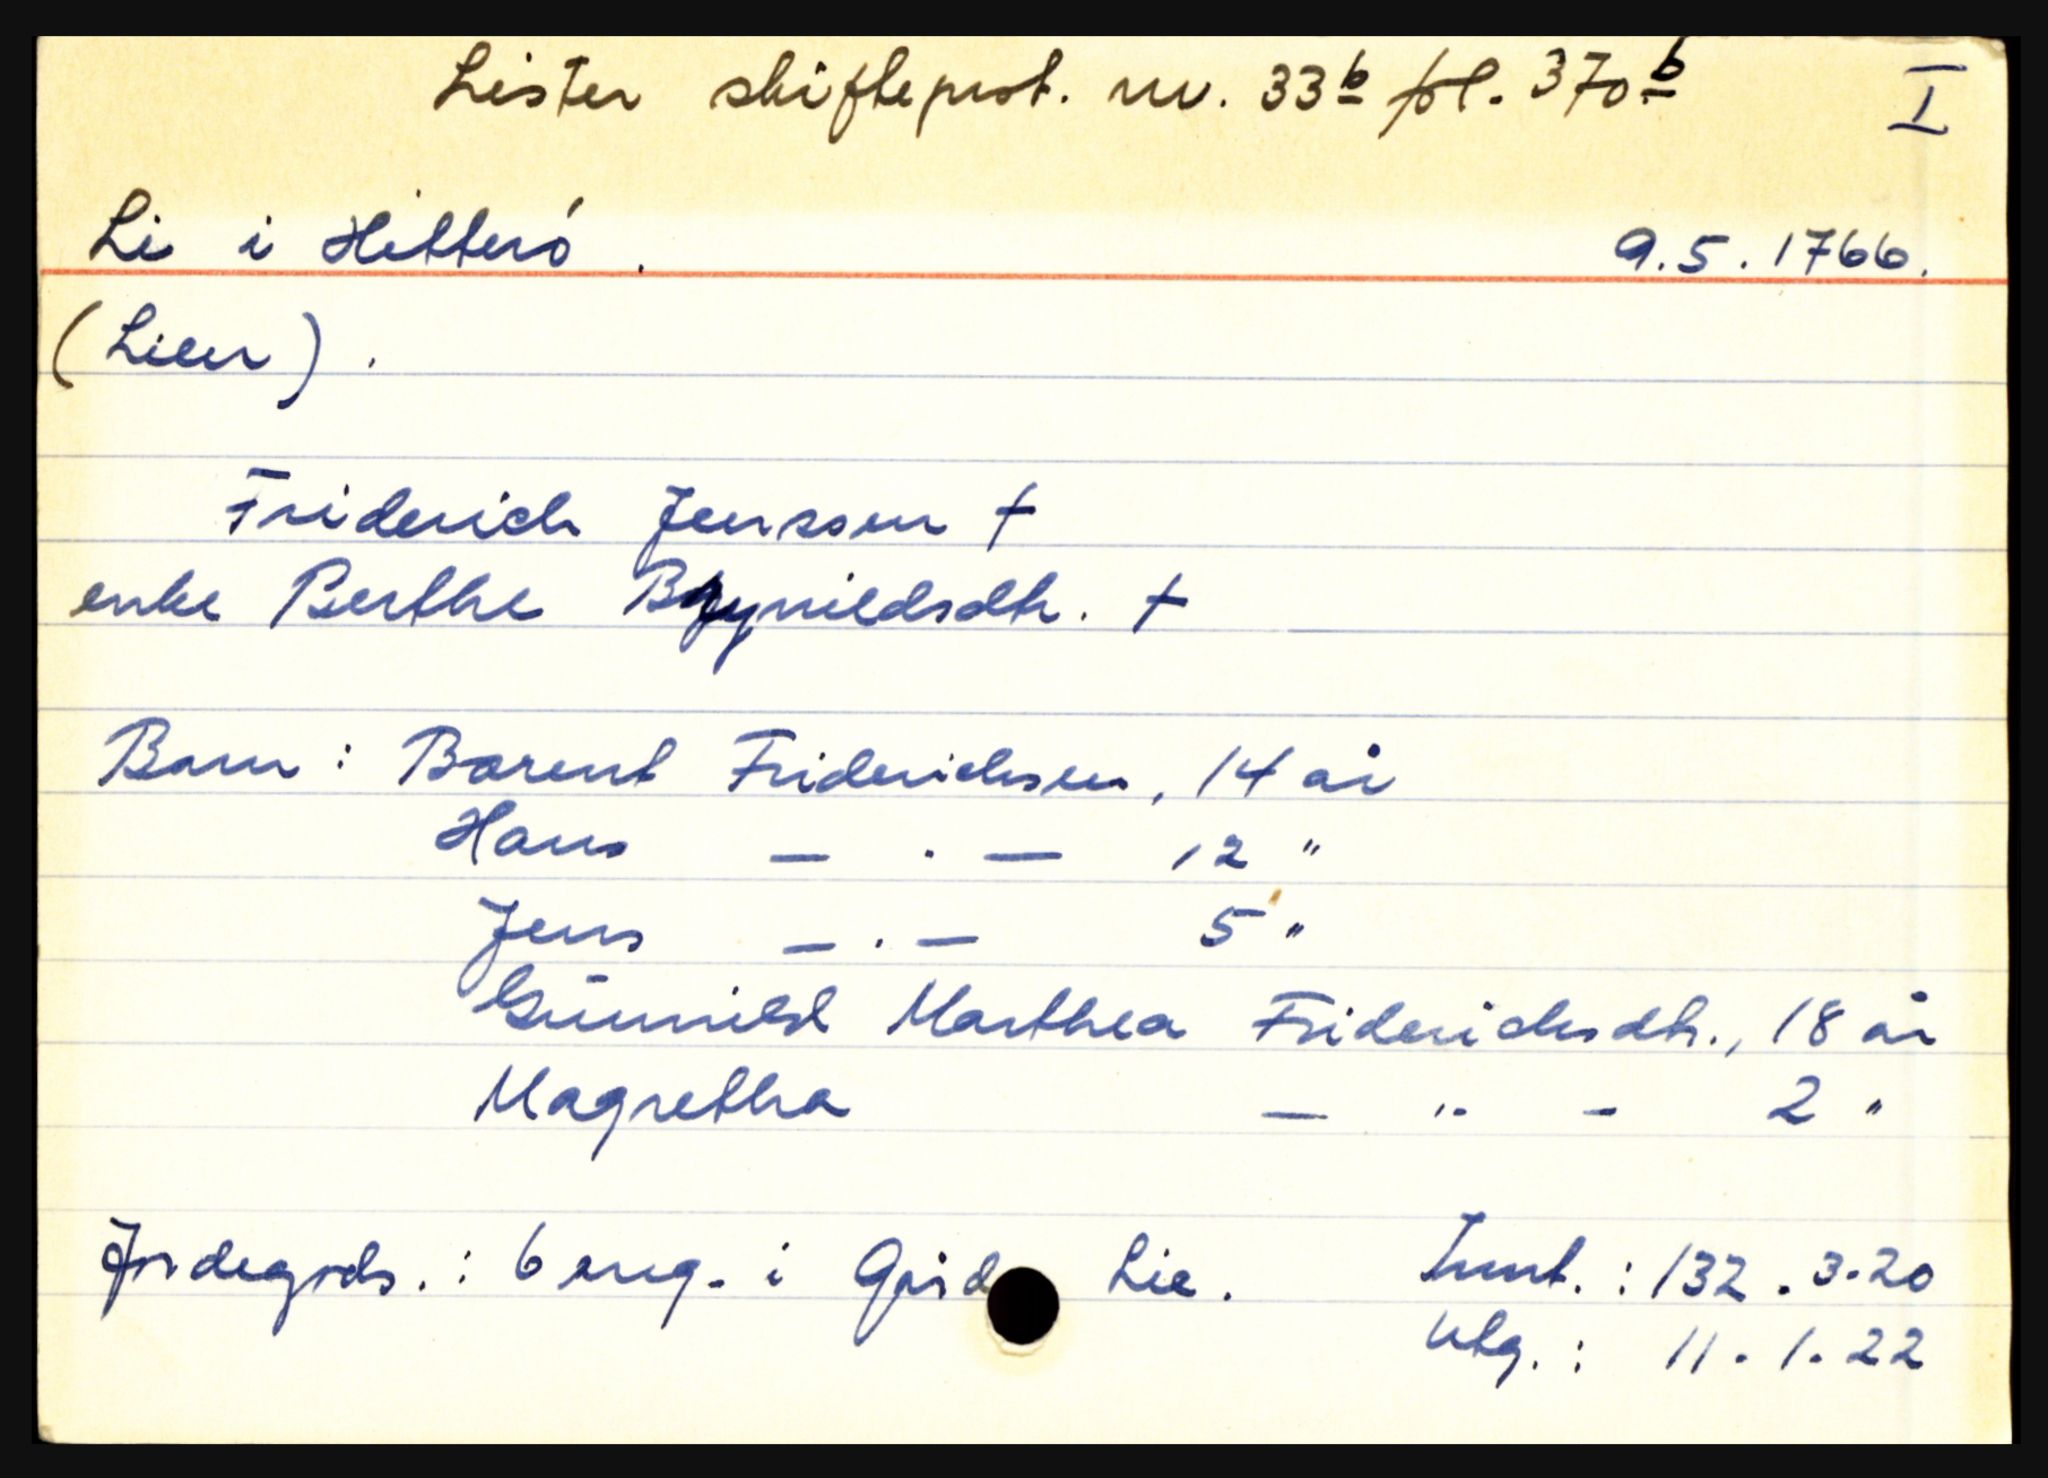 Lister skifteprot. nr. 33b fol. 370b I
Li i Hitterö. 9.5.1766.
(Lien).
Friderich Jenssen †
enke Berthe †
Barn: Barent Friderichsen, 14 år
Hans — . — 12 "
Jens — . — 5 "
Günnild Marthea Friderichsdtr., 18 år
Magretha — " - 2 "
Jordegods.: 6 eng. i Gård Lie. Innt.: 132.3.20
Utg.: 11.1.22